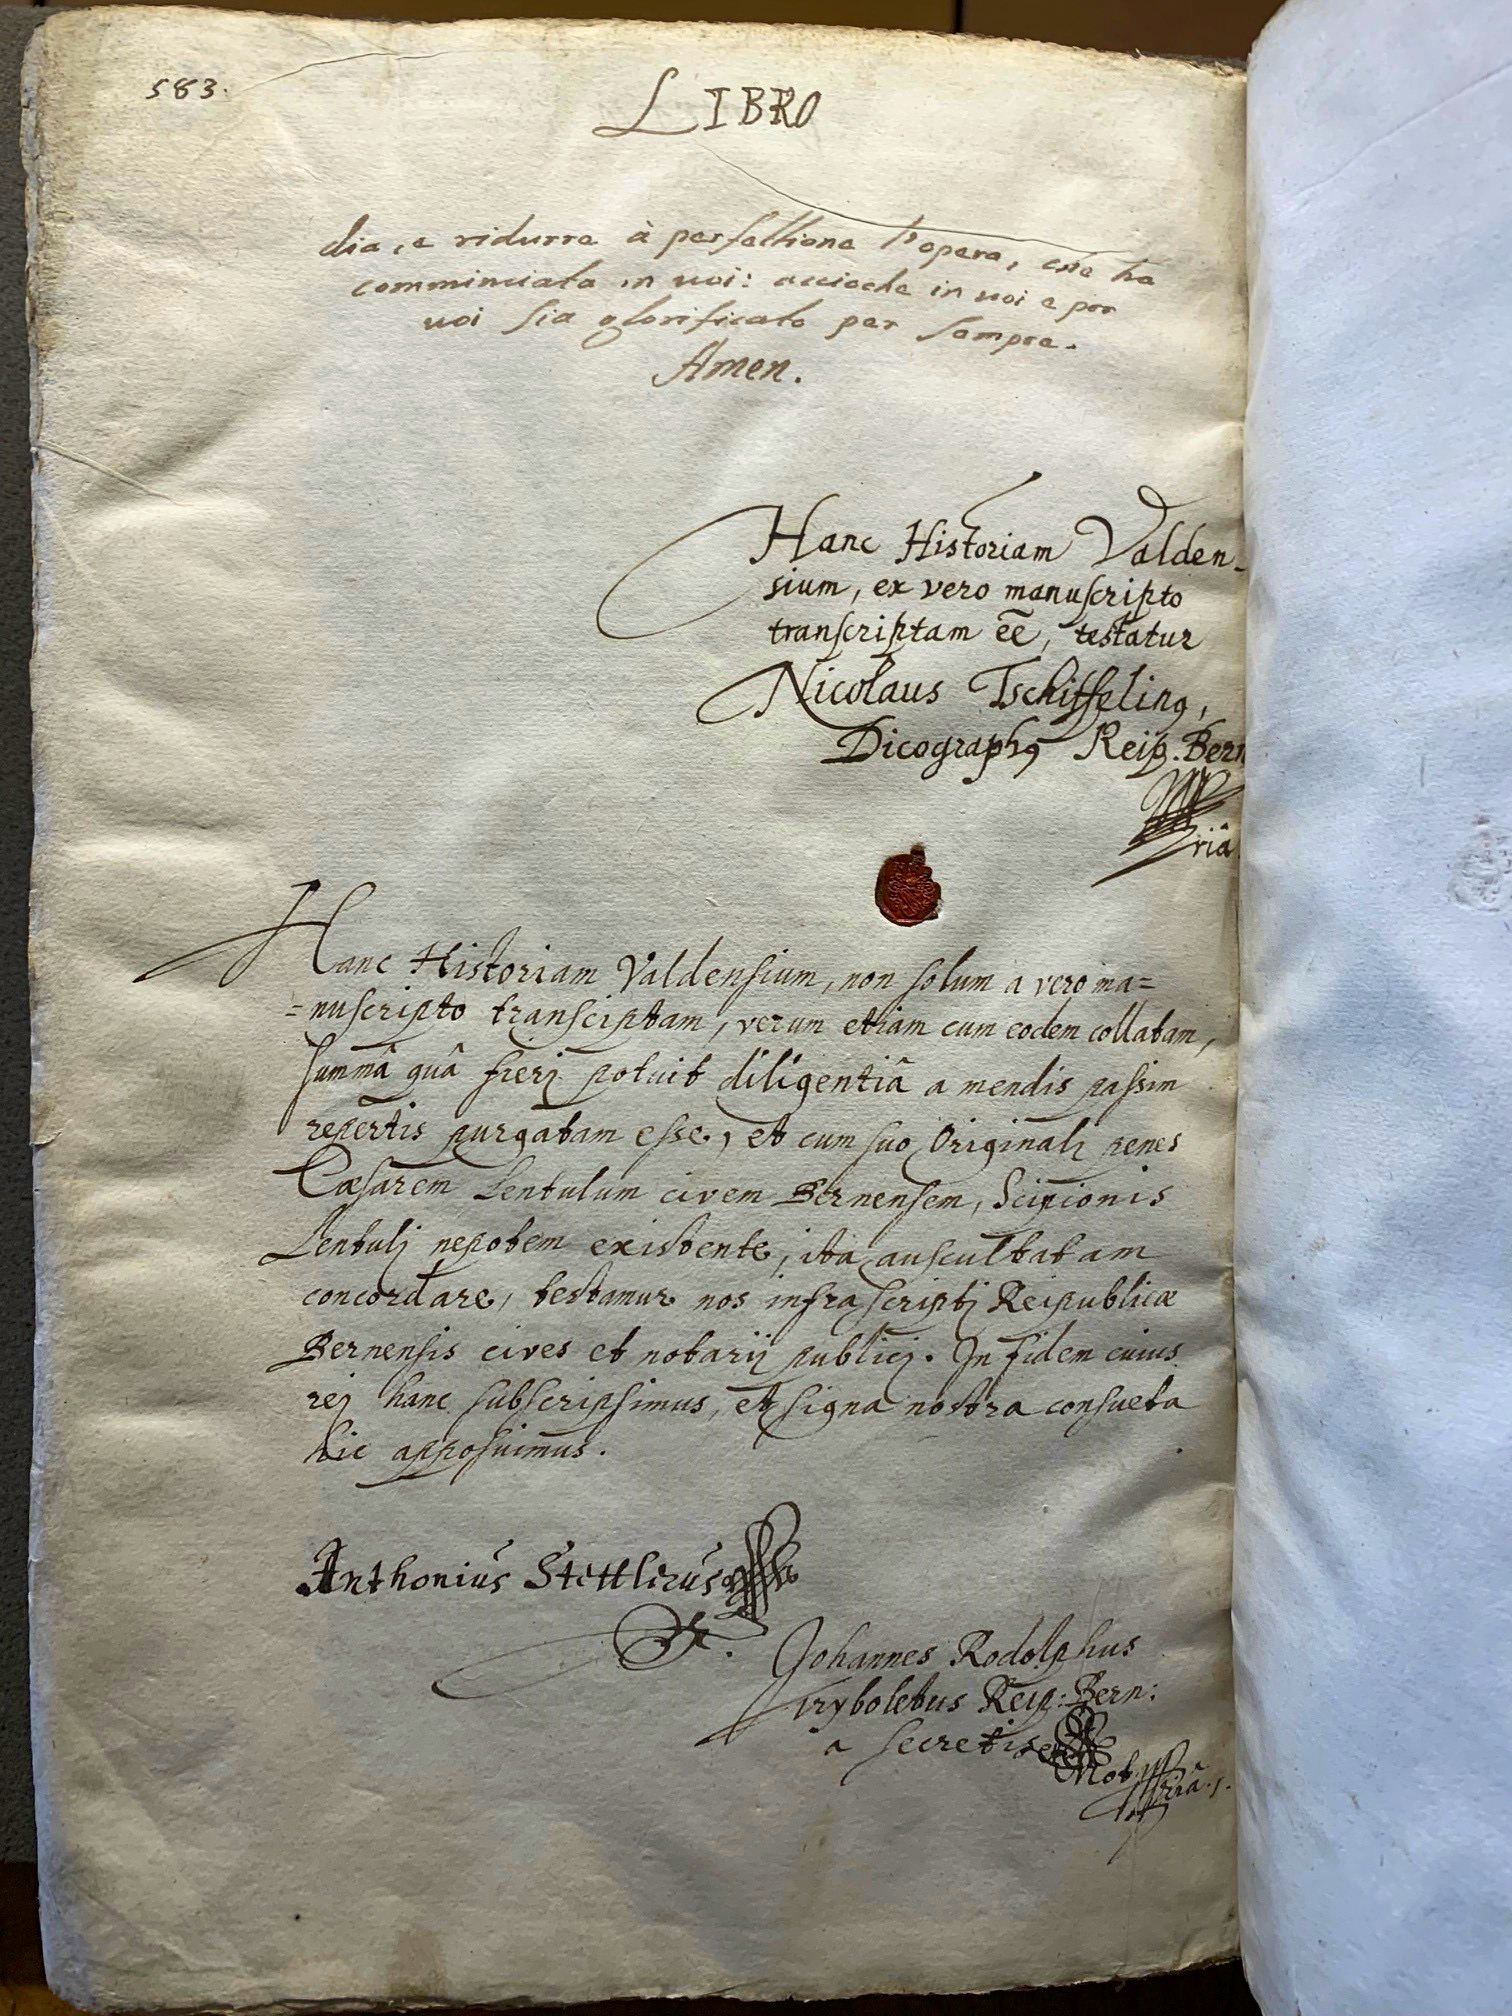 583.
LIBRO
dia, e ridurre à perfettione l'opera, che ha
comminciata in uoi: accioche in uoi e per
uoi sia glorificato per sempre.
Amen.
Hanc Historiam Valden-
sium, ex vero manuscripto
transcriptam eē, testatur
Nicolaus Tschiffeling,
Dicographꝰ Reip. Bern
riâ
Hanc Historiam Valdensium, non solum a vero ma=
=nuscripto transciptam, verum etiam cum eodem collatam,
summâ quâ fierj potuit diligentiâ a mendis passim
repertis purgatam esse, et cum suo Originalj penes
Cæsarem Lentulum civem Bernensem, Scipionis
Lentulj nepotem existente, ita auscultatam
concordare, testamur nos infrascriptj Reipublicæ
Bernensis cives et notarij publicj. In fidem cuius
rej hanc subscripsimus, et signa nostra consueta
hic apposuimus.
Anthonius Stettlerus
Johannes Rodolphus
Tryboletus Reip: Bern:
a secretis
Not.
priâ.